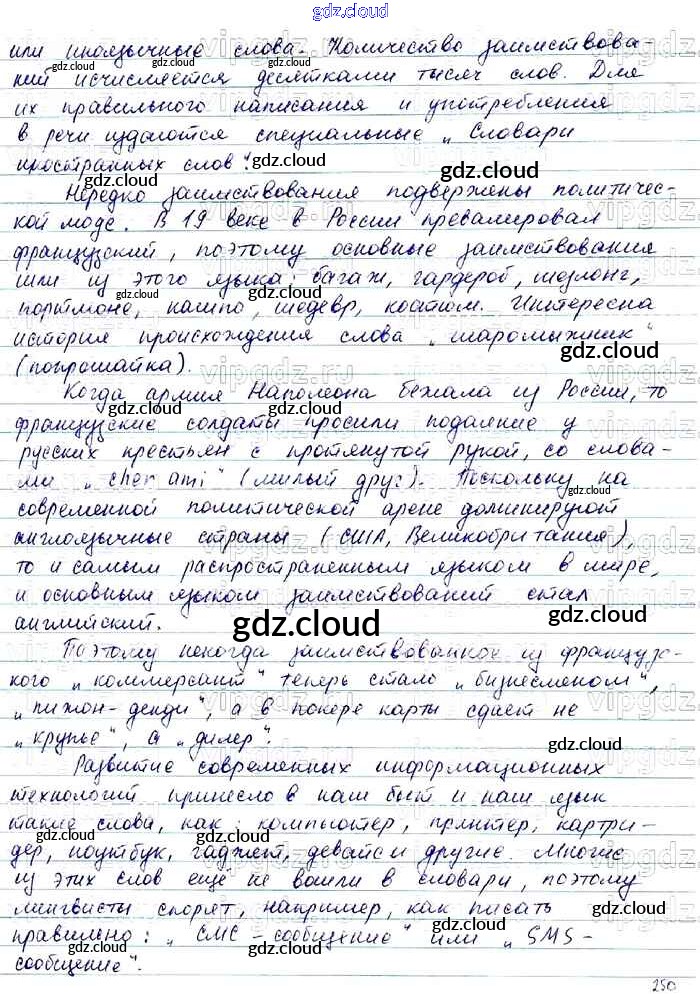 gdz.cloud
или иноязычные слова. Количество заимствова-
ний исчисляется десятками тысяч слов. Для
их правильного написания и употребления
в речи издаются специальные „Словари
иностранных слов".
Нередко заимствования подвержены политичес-
кой моде. В 19 веке в России превалировал
французский, поэтому основные заимствования
шли из этого языка: багаж, гардероб, шезлонг,
портмоне, кашпо, шедевр, костюм. Интересна
история происхождения слова „шаромыжник"
(попрошайка).
Когда армия Наполеона бежала из России, то
французские солдаты просили подаяние у
русских крестьян с протянутой рукой, со слова-
ми „cher ami" (милый друг). Поскольку на
современной политической арене доминируют
англоязычные страны (США, Великобритания),
то и самым распространенным языком в мире,
и основным языком заимствований стал
английский.
gdz.cloud
Поэтому некогда заимствованное из французс-
кого „коммерсант" теперь стало „бизнесменом",
„пижон-денди", а в покере карты сдает не
„крупье", а „дилер".
Развитие современных информационных
технологий принесло в наш быт и наш язык
такие слова, как: компьютер, принтер, картри-
дер, ноутбук, гаджет, девайс и другие. Многие
из этих слов ещё не вошли в словари, поэтому
лингвисты спорят, например, как писать
правильно: „СМС-сообщение" или „SMS-
сообщение".
250